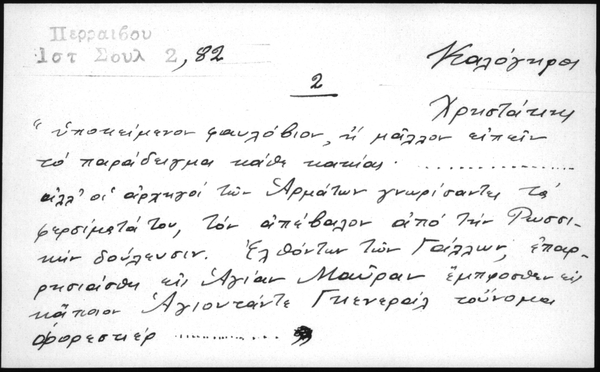 Περραιβου
Ιστ Σουλ 2, 82
Καλόγηροι
2
Χρηστάκης
"ὑποκείμενον φαυλόβιον, ἤ μᾶλλον εἰπεῖν
τό παράδειγμα κάθε κακίας. ..................
ἀλλ' οἱ ἀρχηγοί τῶν Ἁρμάτων γνωρίσαντες τά
φερσίματά του, τόν ἀπέβαλον ἀπό τήν Ρωσσι-
κήν δούλευσιν. Ἐλθόντων τῶν Γάλλων, ἐπαρ-
ρησιάσθη εἰς Ἁγίαν Μαῦραν ἔμπροσθεν εἰς
κἄποιον Ἀγιουτάντε Γκενεράλ τοὔνομα
Φορεστιέρ ...............